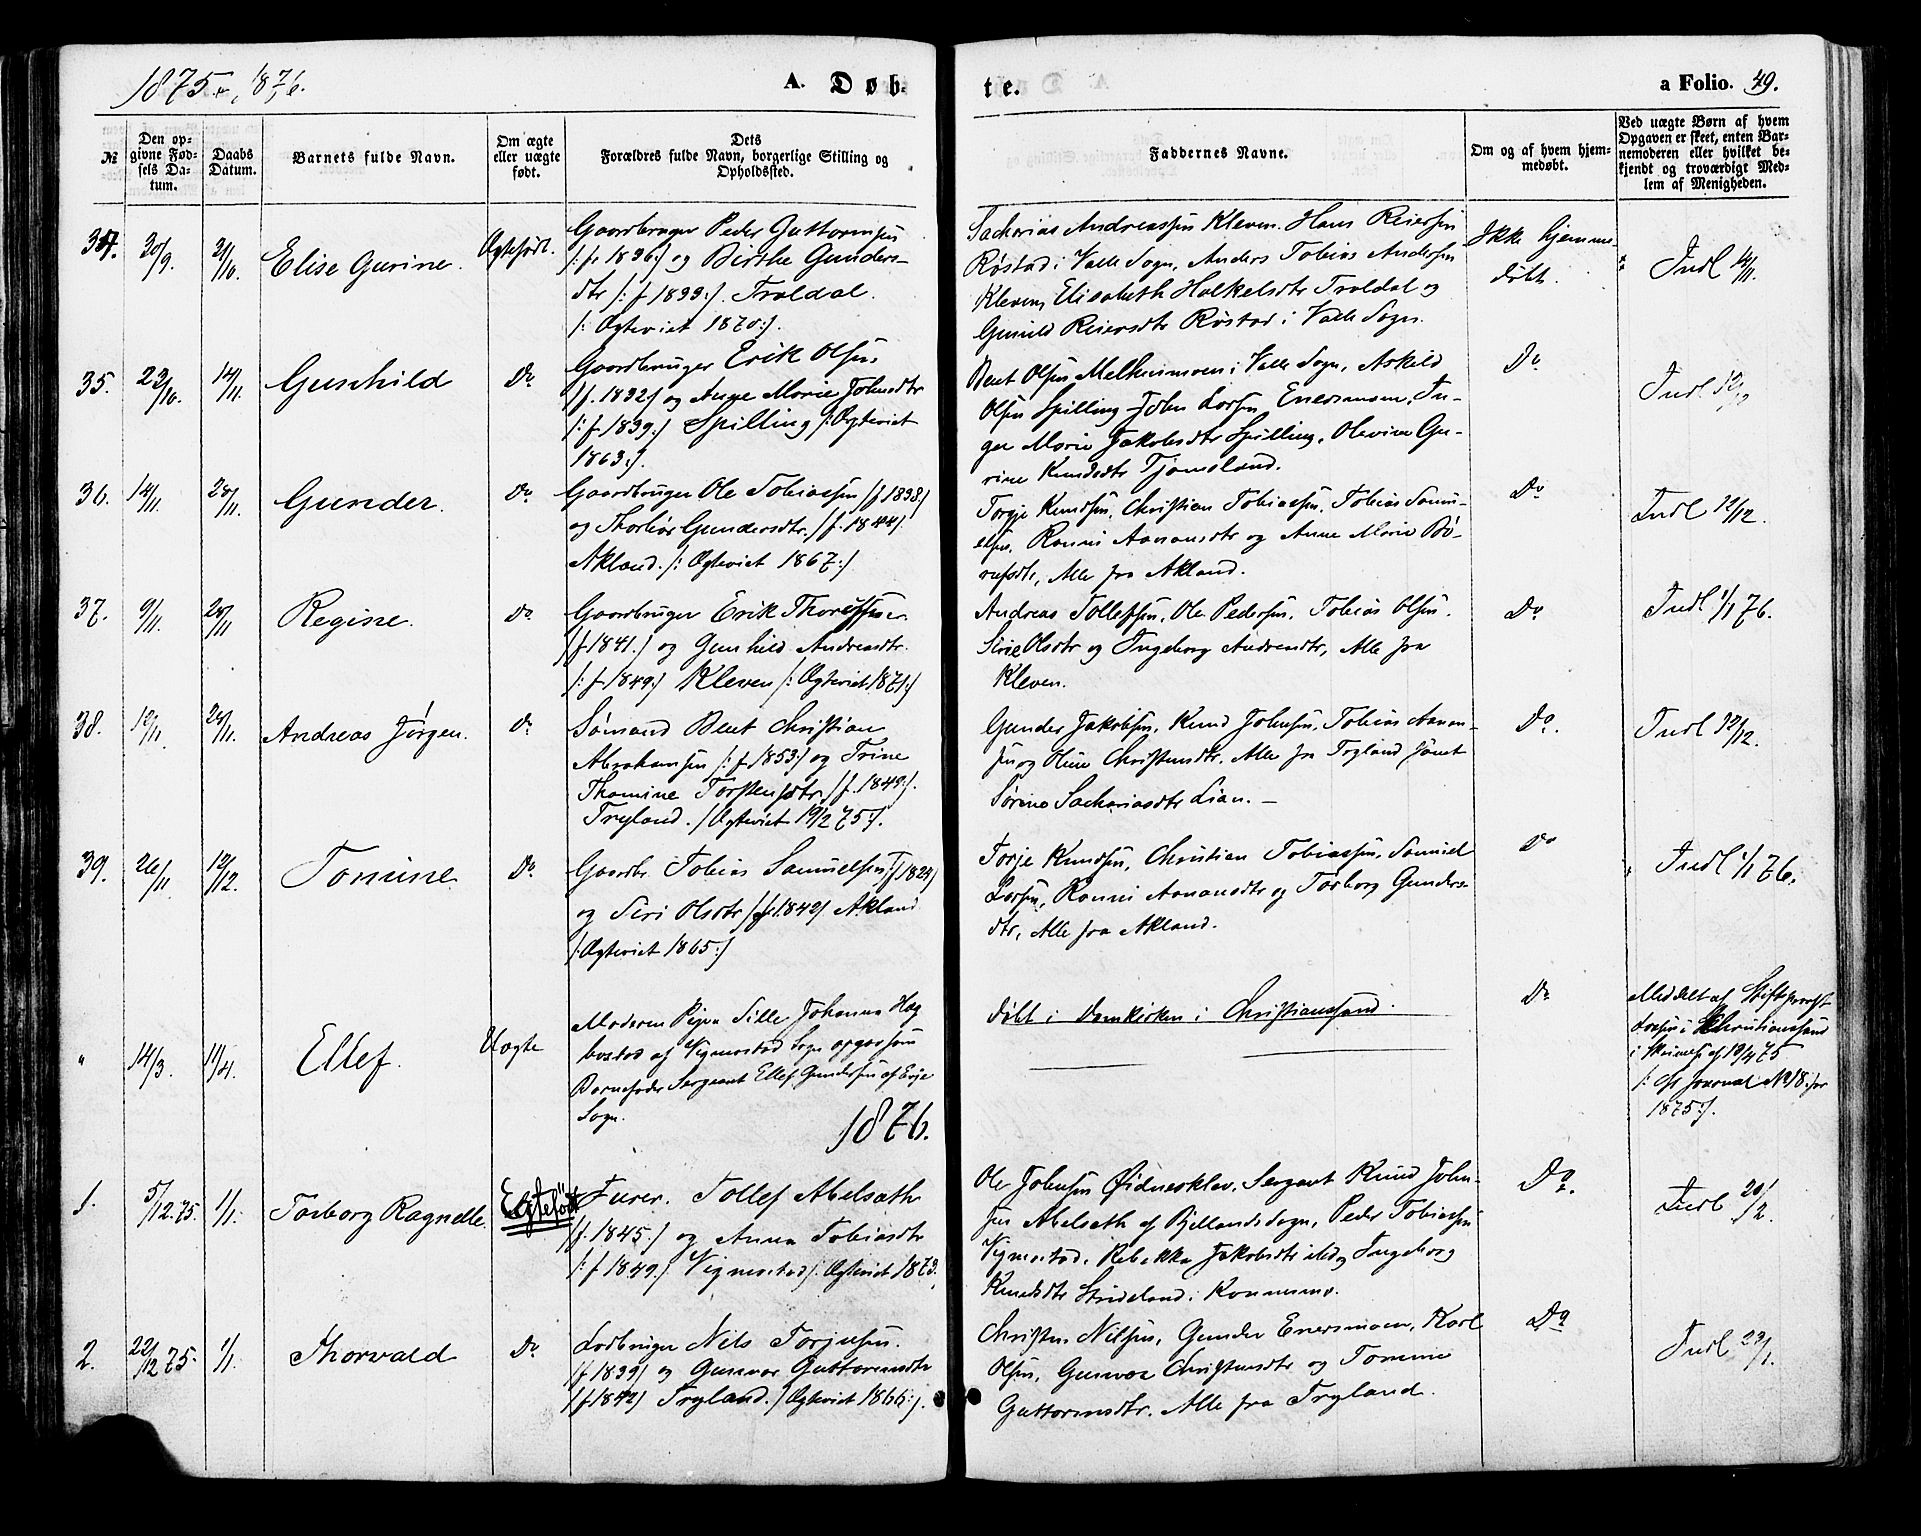 1875 & 1876.
A. Døb-
te.
a Folio. 49.
№
Den op-
givne Fød-
sels Da-
tum.
Daabs
Datum.
Barnets fulde Navn.
Om ægte
eller uægte
født.
Dets
Forældres fulde Navn, borgerlige Stilling og
Opholdssted.
Faddernes Navne.
Om og af hvem hjem-
medøbt.
Ved uægte Børn af hvem
Opgaven er skeet, enten Bar-
nemoderen eller hvilket be-
kjendt og troværdigt Med-
lem af Menigheden.
30/9. 31/10 Elise Gurine. Ægtefødt.
Gaardbruger Peder Guttormsen
/: f. 1836:/ og Birthe Gunders-
dtr /: f 1833:/. Troldal.
/: Ægteviet 1870:/.
Sacharias Andreassen Kleven. Hans Reiersen
Røstad i Valle Sogn, Anders Tobias Andersen
Kleven, Elisabeth Holkelsdtr Troldal og
Gunild Reiersdtr Røstad i Valle Sogn.
Ikke hjemme-
døbt.
Indl 4/11.
35. 23/10. 14/11. Gunhild Do
Gaardbruger Erik Olsen
/f. 1832/ og Anne Marie Johnsdtr
/: f 1839:/ Spilling /: Ægteviet
1863:/.
Bent Olsen Melheimsmoen i Valle Sogn, Askild
Olsen Spilling John Larsen Enersmoen, In-
ger Marie Jakobsdtr Spilling, Olevine Gu-
rine Knudsdtr Tjomsland.
Do
Indl
36. 14/11. 28/11. Gunder. Do
Gaardbruger Ole Tobiassen /f 1838/
og Thorbør Gundersdtr. /f. 1844/.
Akland. /: Ægteviet 1867:/
Torje Knudsen, Christian Tobiassen, Tobias Samu-
elsen, Ronnei Aanansdtr og Anne Marie
Alle fra Akland.
Do
Indl 12/12.
37. 9/11. 28/11 Regine. Do
Gaardbruger Erik
/f 1841./ og Gunhild Andreasdtr.
/: f 1849:/ Kleven /: Ægteviet 1871:/
Andreas Tollefsen, Ole Pedersen, Tobias Olsen.
Sirie Olsdtr og Ingeborg Andreasdtr, Alle fra
Kleven.
Do
Indl 1/1 76.
38. 28/11. Andreas Jørgen. Do
Sømand Bent Christian
Abrahamsen /: f. 1853:/ og Trine
Thomine Torstensdtr. /f. 1849:/.
Tryland. /Ægteviet 19/2 75:/.
Gunder Jakobsen, Knud Johnsen, Tobias Aanon-
sen og Christensdtr. Alle fra Tryland samt
Sørine Sachariasdtr Lian. –
Do.
Indl 12/12.
39. 26/11. 12/12. Tomine. Do
Gaardbr. Tobias Samuelsen /f 1824/
og Siri Olsdtr /f 1842/ Akland
/: Ægteviet 1865:/
Torje Knudsen, Christian Tobiassen, Samuel
Larsen, Ronnei Aanansdtr og Torborg Gunders-
dtr, Alle fra Akland.
Do
Indl 1/1 76.
" 14/3. 11/4. Ellef. Uægte
Moderen Pigen Sille Johanna Hag
bostad af Vigmostad Sogn opgav som
Barnefader Sergeant Ellef Gundersen af Evje
Sogn.
Døbt i Domkirken i Christianssand.
Do
Meddelt af Stiftsprovst
i Christianssand
i Skrivelse af 12/4 75
/: cfr Journal No 18 for
1875:/.
1876.
1. 5/12. 75. 1/1. Torborg Ragnelle. Egtefødt
Furer. Tollef Abelsæth
/f. 1845./ og Anna Tobiasdtr
/: f 1849./ Vigmostad /: Ægteviet 1873.
Ole Johnsen Øidnesklev, Sergeant Knud John-
sen Abelsæth af Bjellands Sogn, Peder Tobiassen
Vigmostad, Rebekka Jakobsdtr ibid og Ingeborg
Knudsdtr Strideland i Konnesmo.
Do.
Indl 20/2.
2. 22/12 75. 1/1. Thorvald Do
Lodbruger Nils Torjusen.
/f 1839/ og Gunvor Guttormsdtr
/f 1842/ Tryland. /Ægteviet 1866:/.
Christen Nilsen, Gunder Enersmoen, Karl
Olsen, Gunvor Christensdtr og Tomine
Guttormsdtr. Alle fra Tryland.
Do
Indl 23/1.